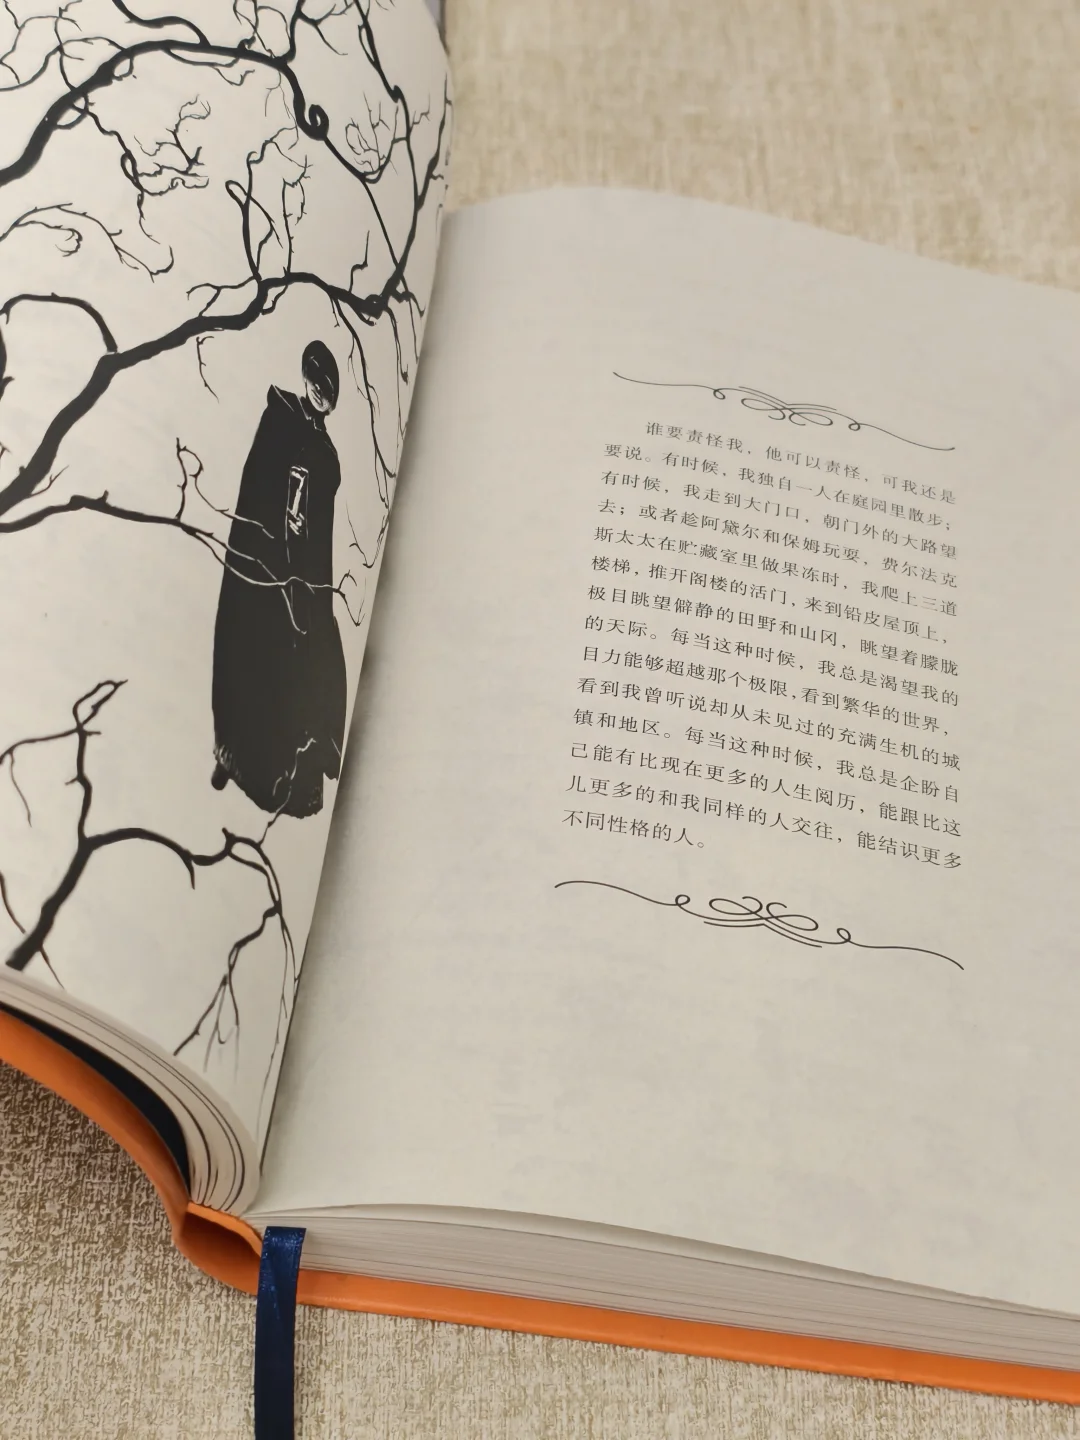 谁要责怪我，他可以责怪，可我还是
要说。有时候，我独自一人在庭园里散步；
有时候，我走到大门口，朝门外的大路望
去；或者趁阿黛尔和保姆玩耍，费尔法克
斯太太在贮藏室里做果冻时，我爬上三道
楼梯，推开阁楼的活门，来到铅皮屋顶上，
极目眺望僻静的田野和山冈，眺望着朦胧
的天际。每当这种时候，我总是渴望我的
目力能够超越那个极限，看到繁华的世界，
看到我曾听说却从未见过的充满生机的城
镇和地区。每当这种时候，我总是企盼自
己能有比现在更多的人生阅历，能跟比这
儿更多的和我同样的人交往，能结识更多
不同性格的人。